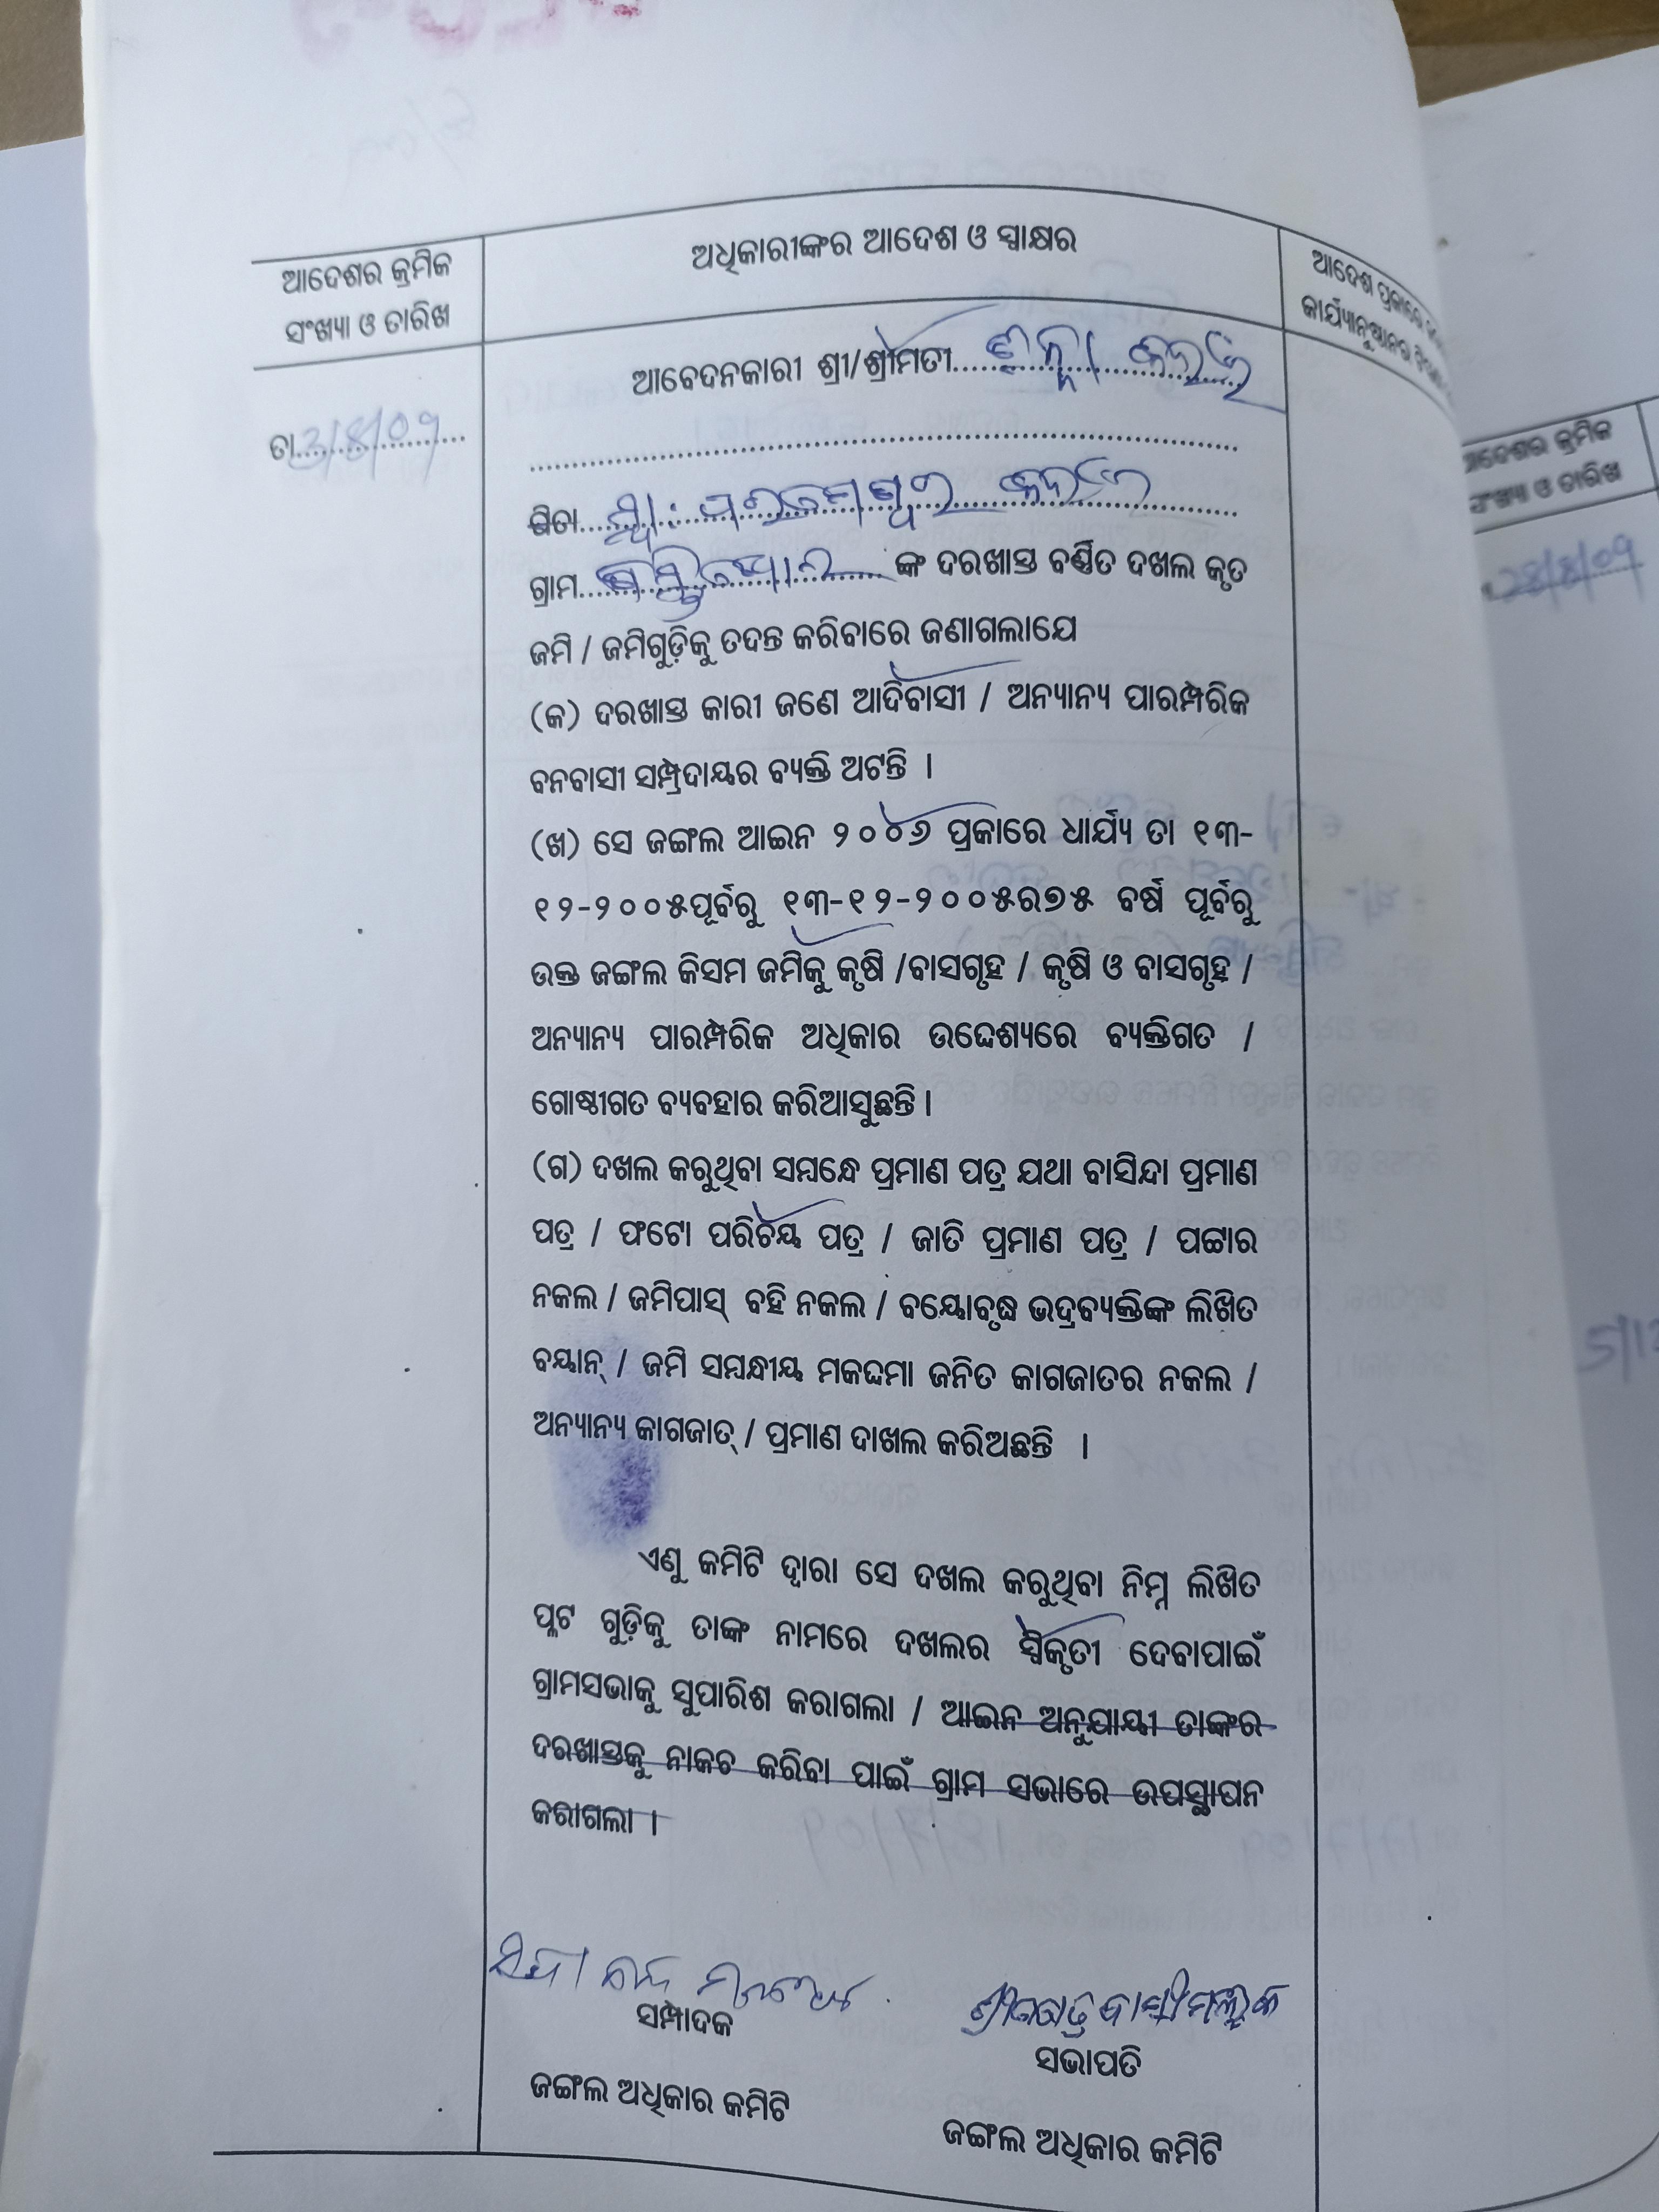 ଆଦେଶର କ୍ରମିକ
ସଂଖ୍ୟା ଓ ତାରିଖ
ଅଧିକାରୀଙ୍କର ଆଦେଶ ଓ ସ୍ୱାକ୍ଷର
ଆଦେଶ ପ୍ରକାରେ
କାର୍ଯ୍ୟାନୁଷ୍ଠାନର
ତା 3/8/09
ଆବେଦନକାରୀ ଶ୍ରୀ/ଶ୍ରୀମତୀ
ପିତା
ଗ୍ରାମ ଙ୍କ ଦରଖାସ୍ତ ବର୍ଣ୍ଣିତ ଦଖଲ କୃତ
ଜମି / ଜମିଗୁଡ଼ିକୁ ତଦନ୍ତ କରିବାରେ ଜଣାଗଲାଯେ
(କ) ଦରଖାସ୍ତ କାରୀ ଜଣେ ଆଦିବାସୀ / ଅନ୍ୟାନ୍ୟ ପାରମ୍ପରିକ
ବନବାସୀ ସମ୍ପ୍ରଦାୟର ବ୍ୟକ୍ତି ଅଟନ୍ତି ।
(ଖ) ସେ ଜଙ୍ଗଲ ଆଇନ ୨୦୦୬ ପ୍ରକାରେ ଧାର୍ଯ୍ୟ ତା ୧୩-
୧୨-୨୦୦୫ପୂର୍ବରୁ ୧୩-୧୨-୨୦୦୫ର୭୫ ବର୍ଷ ପୂର୍ବରୁ
ଉକ୍ତ ଜଙ୍ଗଲ କିସମ ଜମିକୁ କୃଷି /ବାସଗୃହ / କୃଷି ଓ ବାସଗୃହ /
ଅନ୍ୟାନ୍ୟ ପାରମ୍ପରିକ ଅଧିକାର ଉଦ୍ଦେଶ୍ୟରେ ବ୍ୟକ୍ତିଗତ /
ଗୋଷ୍ଠୀଗତ ବ୍ୟବହାର କରିଆସୁଛନ୍ତି ।
(ଗ) ଦଖଲ କରୁଥିବା ସମ୍ବନ୍ଧେ ପ୍ରମାଣ ପତ୍ର ଯଥା ବାସିନ୍ଦା ପ୍ରମାଣ
ପତ୍ର / ଫଟୋ ପରିଚୟ ପତ୍ର / ଜାତି ପ୍ରମାଣ ପତ୍ର / ପଟ୍ଟାର
ନକଲ / ଜମିପାସ୍ ବହି ନକଲ / ବୟୋବୃଦ୍ଧ ଭଦ୍ରବ୍ୟକ୍ତିଙ୍କ ଲିଖିତ
ବୟାନ୍ / ଜମି ସମ୍ବନ୍ଧୀୟ ମକଦ୍ଦମା ଜନିତ କାଗଜାତର ନକଲ /
ଅନ୍ୟାନ୍ୟ କାଗଜାତ୍ / ପ୍ରମାଣ ଦାଖଲ କରିଅଛନ୍ତି ।
ଏଣୁ କମିଟି ଦ୍ୱାରା ସେ ଦଖଲ କରୁଥିବା ନିମ୍ନ ଲିଖିତ
ପ୍ଳଟ ଗୁଡ଼ିକୁ ତାଙ୍କ ନାମରେ ଦଖଲର ସ୍ୱିକୃତୀ ଦେବାପାଇଁ
ଗ୍ରାମସଭାକୁ ସୁପାରିଶ କରାଗଲା / ଆଇନ ଅନୁଯାୟୀ ତାଙ୍କର
ଦରଖାସ୍ତକୁ ନାକଚ କରିବା ପାଇଁ ଗ୍ରାମ ସଭାରେ ଉପସ୍ଥାପନ
କରାଗଲା ।
ସମ୍ପାଦକ
ଜଙ୍ଗଲ ଅଧିକାର କମିଟି
ସଭାପତି
ଜଙ୍ଗଲ ଅଧିକାର କମିଟି
କ୍ରମିକ
ସଂଖ୍ୟା ଓ ତାରିଖ
28/8/09